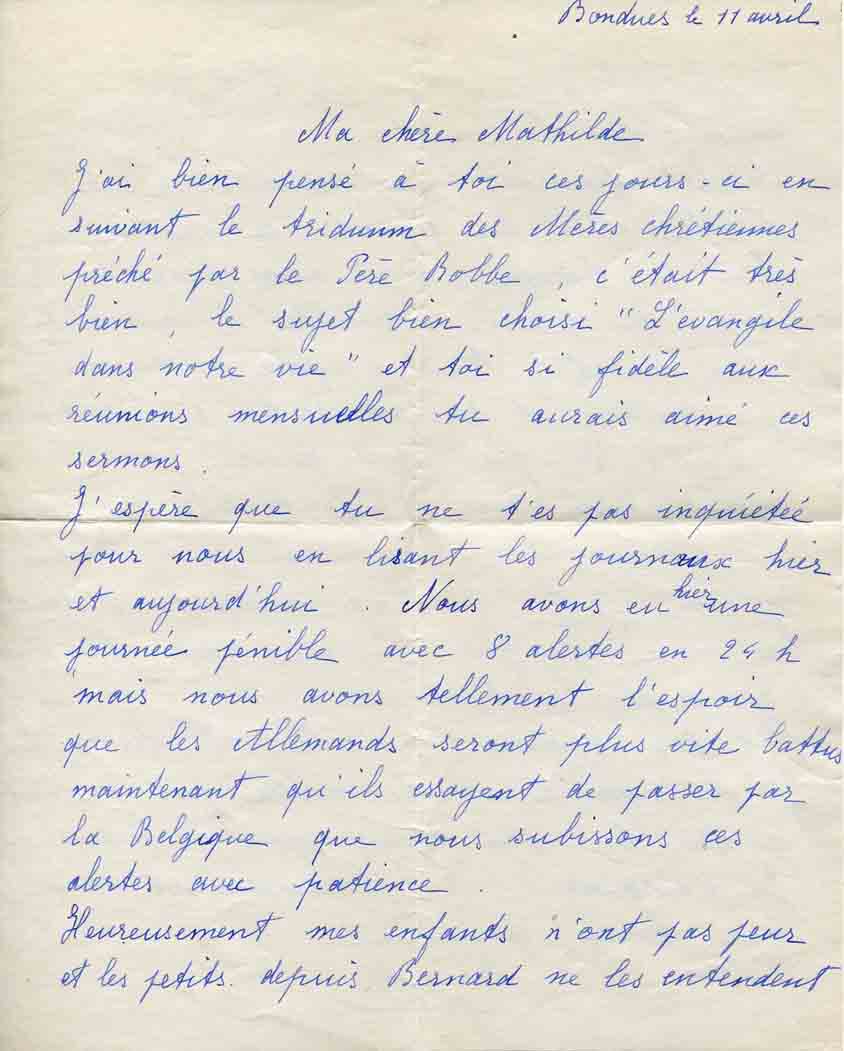 Bondues le 11 avril
Ma chère Mathilde
J'ai bien pensé à toi ces jours-ci en
suivant le triduum des Mères chrétiennes
préché par le Père Bobbe, c'était très
bien, le sujet bien choisi "L'evangile
dans notre vie" et toi si fidèle aux
réunions mensuelles tu aurais aimé ces
sermons.
J'espère que tu ne t'es pas inquiétée
pour nous en lisant les journaux hier
et aujourd'hui. Nous avons eu hier une
journée pénible avec 8 alertes en 24 h
mais nous avons tellement l'espoir
que les Allemands seront plus vite battus
maintenant qu'ils essayent de passer par
la Belgique que nous subissons ces
alertes avec patience.
Heureusement mes enfants n'ont pas peur
et les petits depuis Bernard ne les entendent